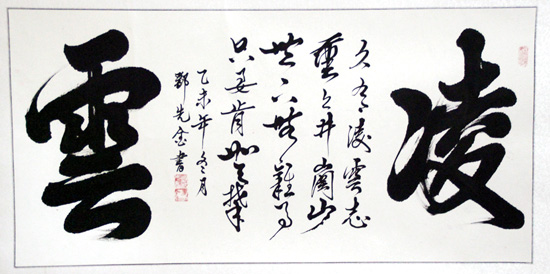 凌
久有凌雲志
重上井崗山
世上無難事
只要肯登攀
乙未年冬月
先書
雲